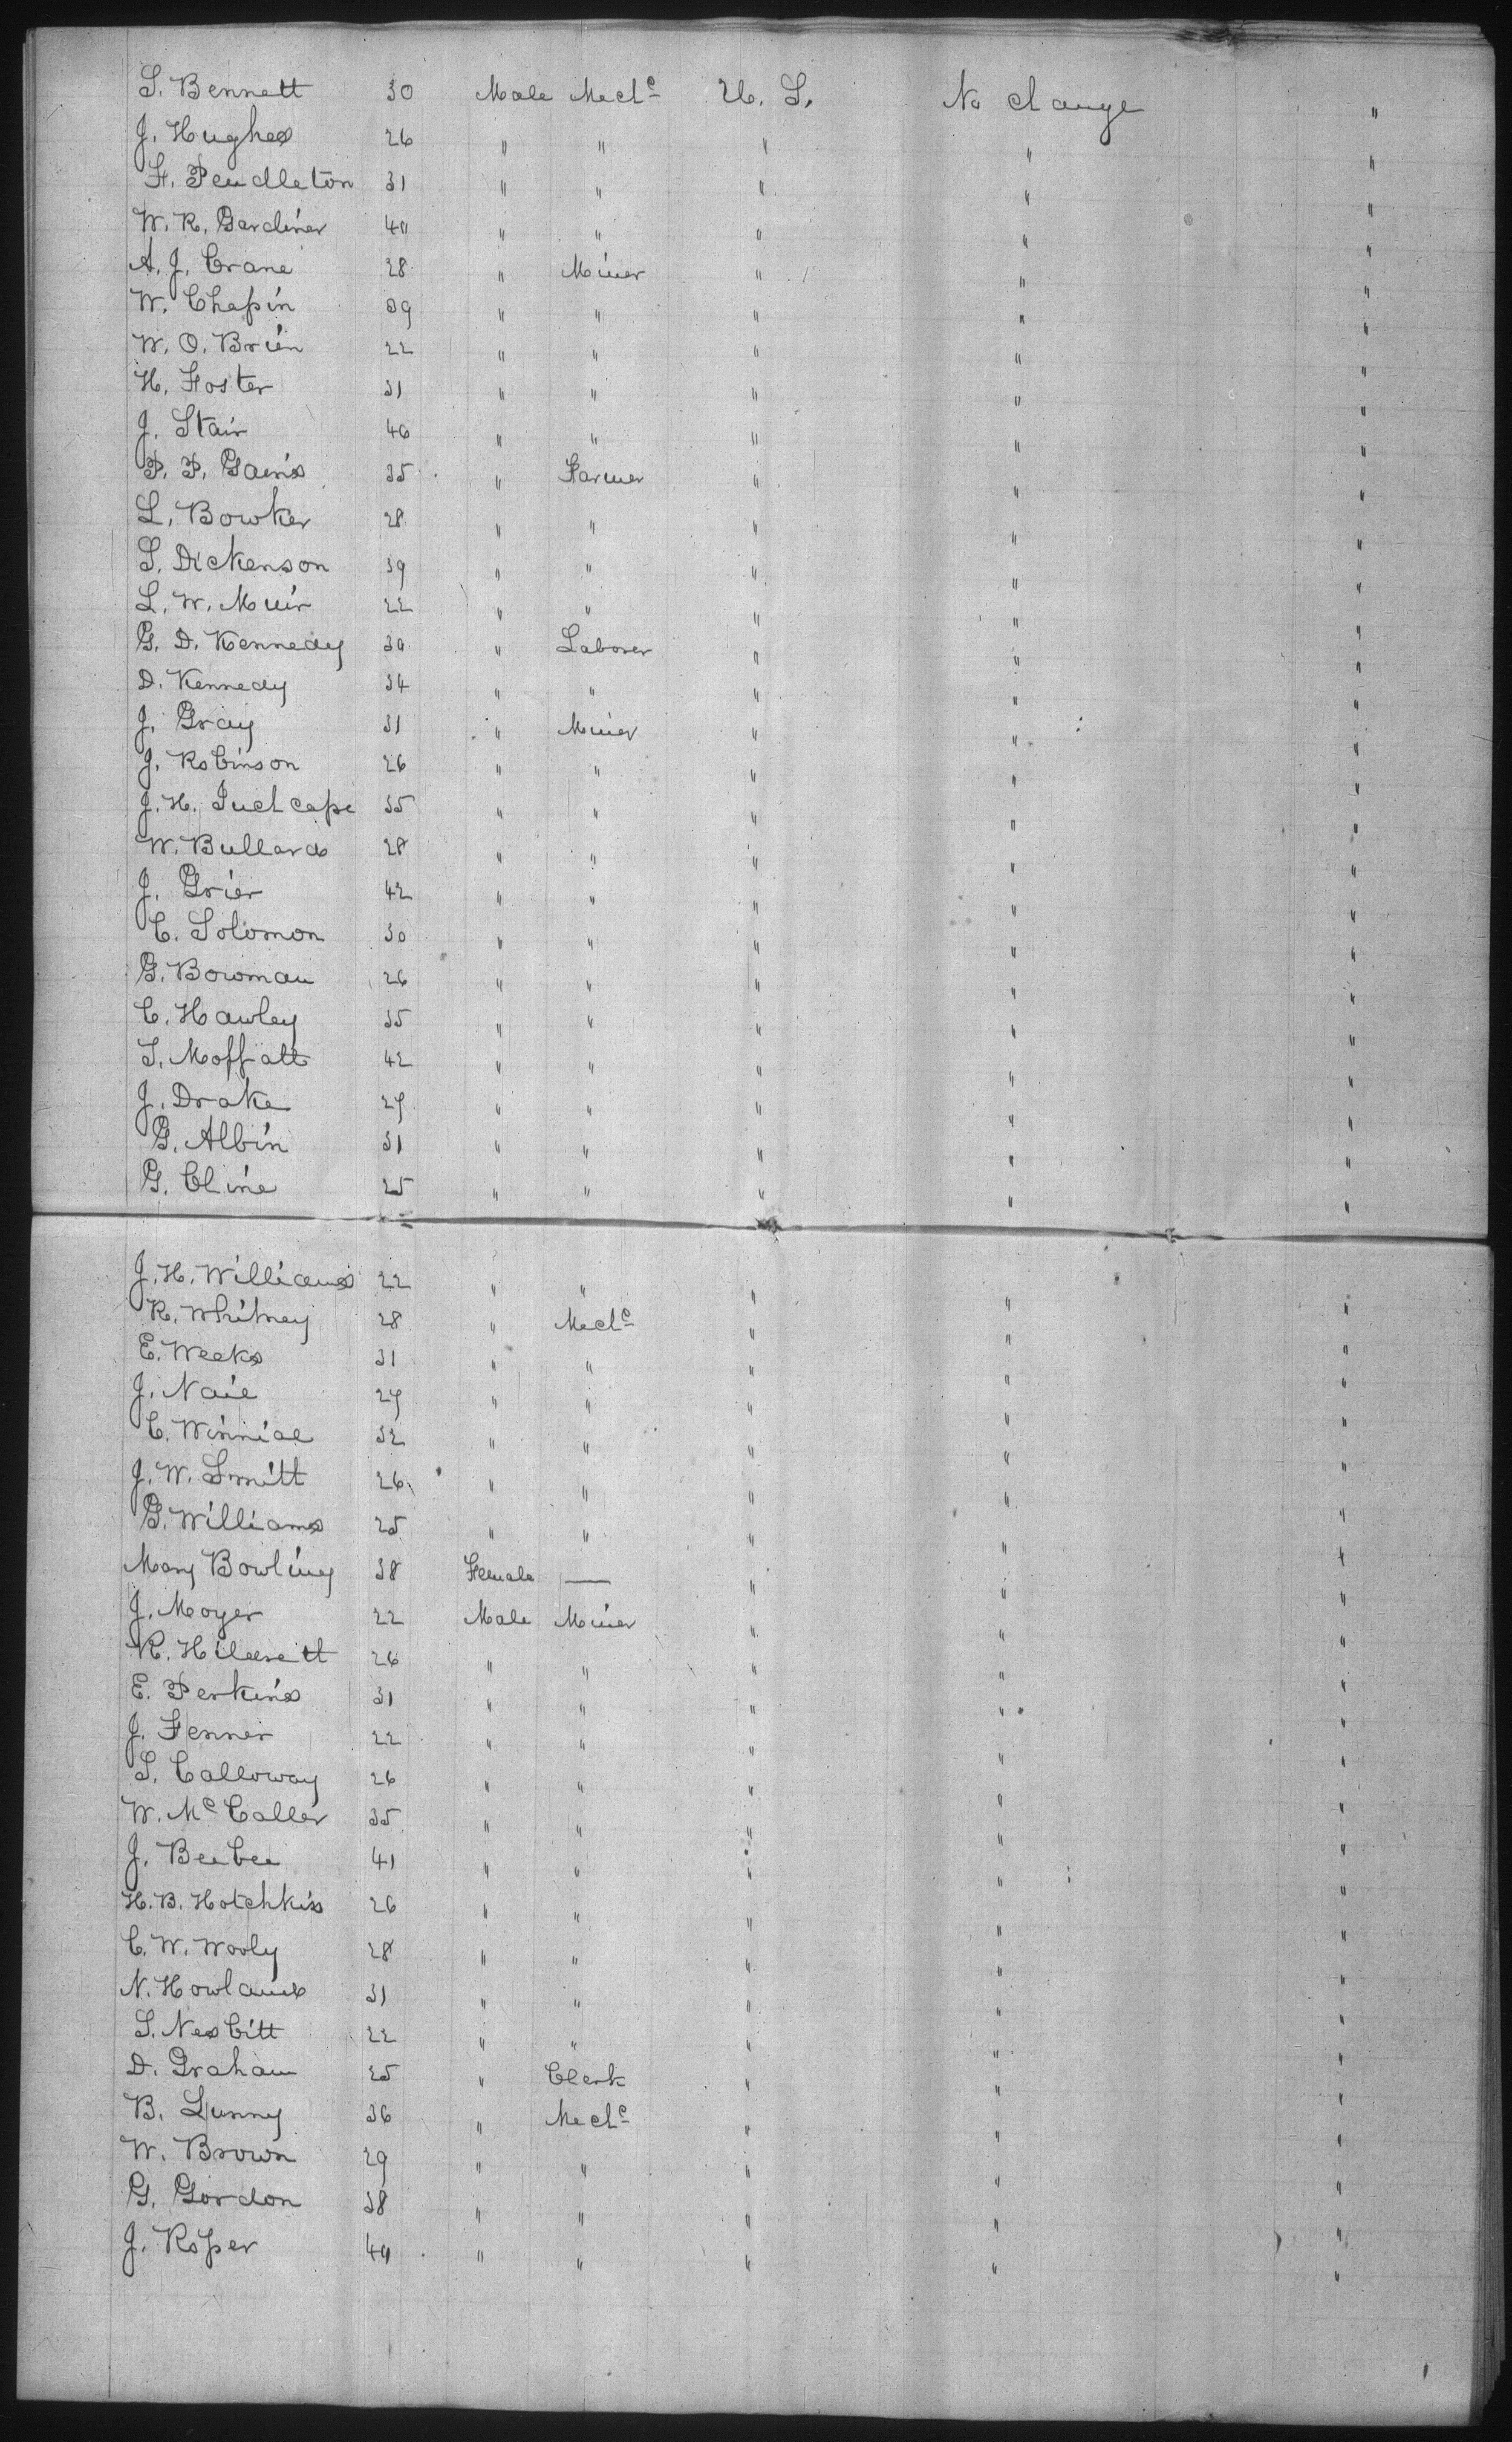 S. Bennett 30 Male Mech<sup>c</sup> U. S. No change "
J. Hughes 26 " " " " "
F. Pendleton 31 " " " " "
W. R. Gardiner 40 " " " " "
A. J. Crane 28 " Miner " " "
W. Chapin 39 " " " " "
W. O. Brien 22 " " " " "
H. Foster 31 " " " " "
J. Stair 46 " " " " "
P. P. Gains 35 " Farmer " " "
L. Bowker 28 " " " " "
S. Dickenson 39 " " " " "
L. W. Muir 22 " " " " "
G. D. Kennedy 30 " Laborer " " "
D. Kennedy 34 " " " " "
J. Gray 31 " Miner " " "
J. Robinson 26 " " " " "
J. H. Juchcape 35 " " " " "
W. Bullard 28 " " " " "
J. Grier 42 " " " " "
C. Solomon 30 " " " " "
G. Bowman 26 " " " " "
C. Hawley 35 " " " " "
S. Moffatt 42 " " " " "
J. Drake 27 " " " " "
G. Albin 31 " " " " "
G. Cline 25 " " " " "
J. H. Williams 22 " " " " "
R. Whitney 28 " Mech<sup>c</sup> " " "
E. Weeks 31 " " " " "
J. Naie 27 " " " " "
C. 32 " " " " "
J. W. Smitt 26 " " " " "
G. Williams 25 " " " " "
Mary Bowling 38 Female — " " "
J. Moyer 22 Male Miner " " "
R. 26 " " " " "
E. Perkins 31 " " " " "
J. Fenner 22 " " " " "
S. Calloway 26 " " " " "
W. McCaller 35 " " " " "
J. Beebee 41 " " " " "
H. B. Hotchkiss 26 " " " " "
C. W. Wooly 28 " " " " "
N. Howland 31 " " " " "
S. Nesbitt 22 " " " " "
D. Graham 25 " Clerk " " "
B. Lunny 36 " Mech<sup>c</sup> " " "
W. Brown 29 " " " " "
G. Gordon 38 " " " " "
J. Roper 40 " " " " "